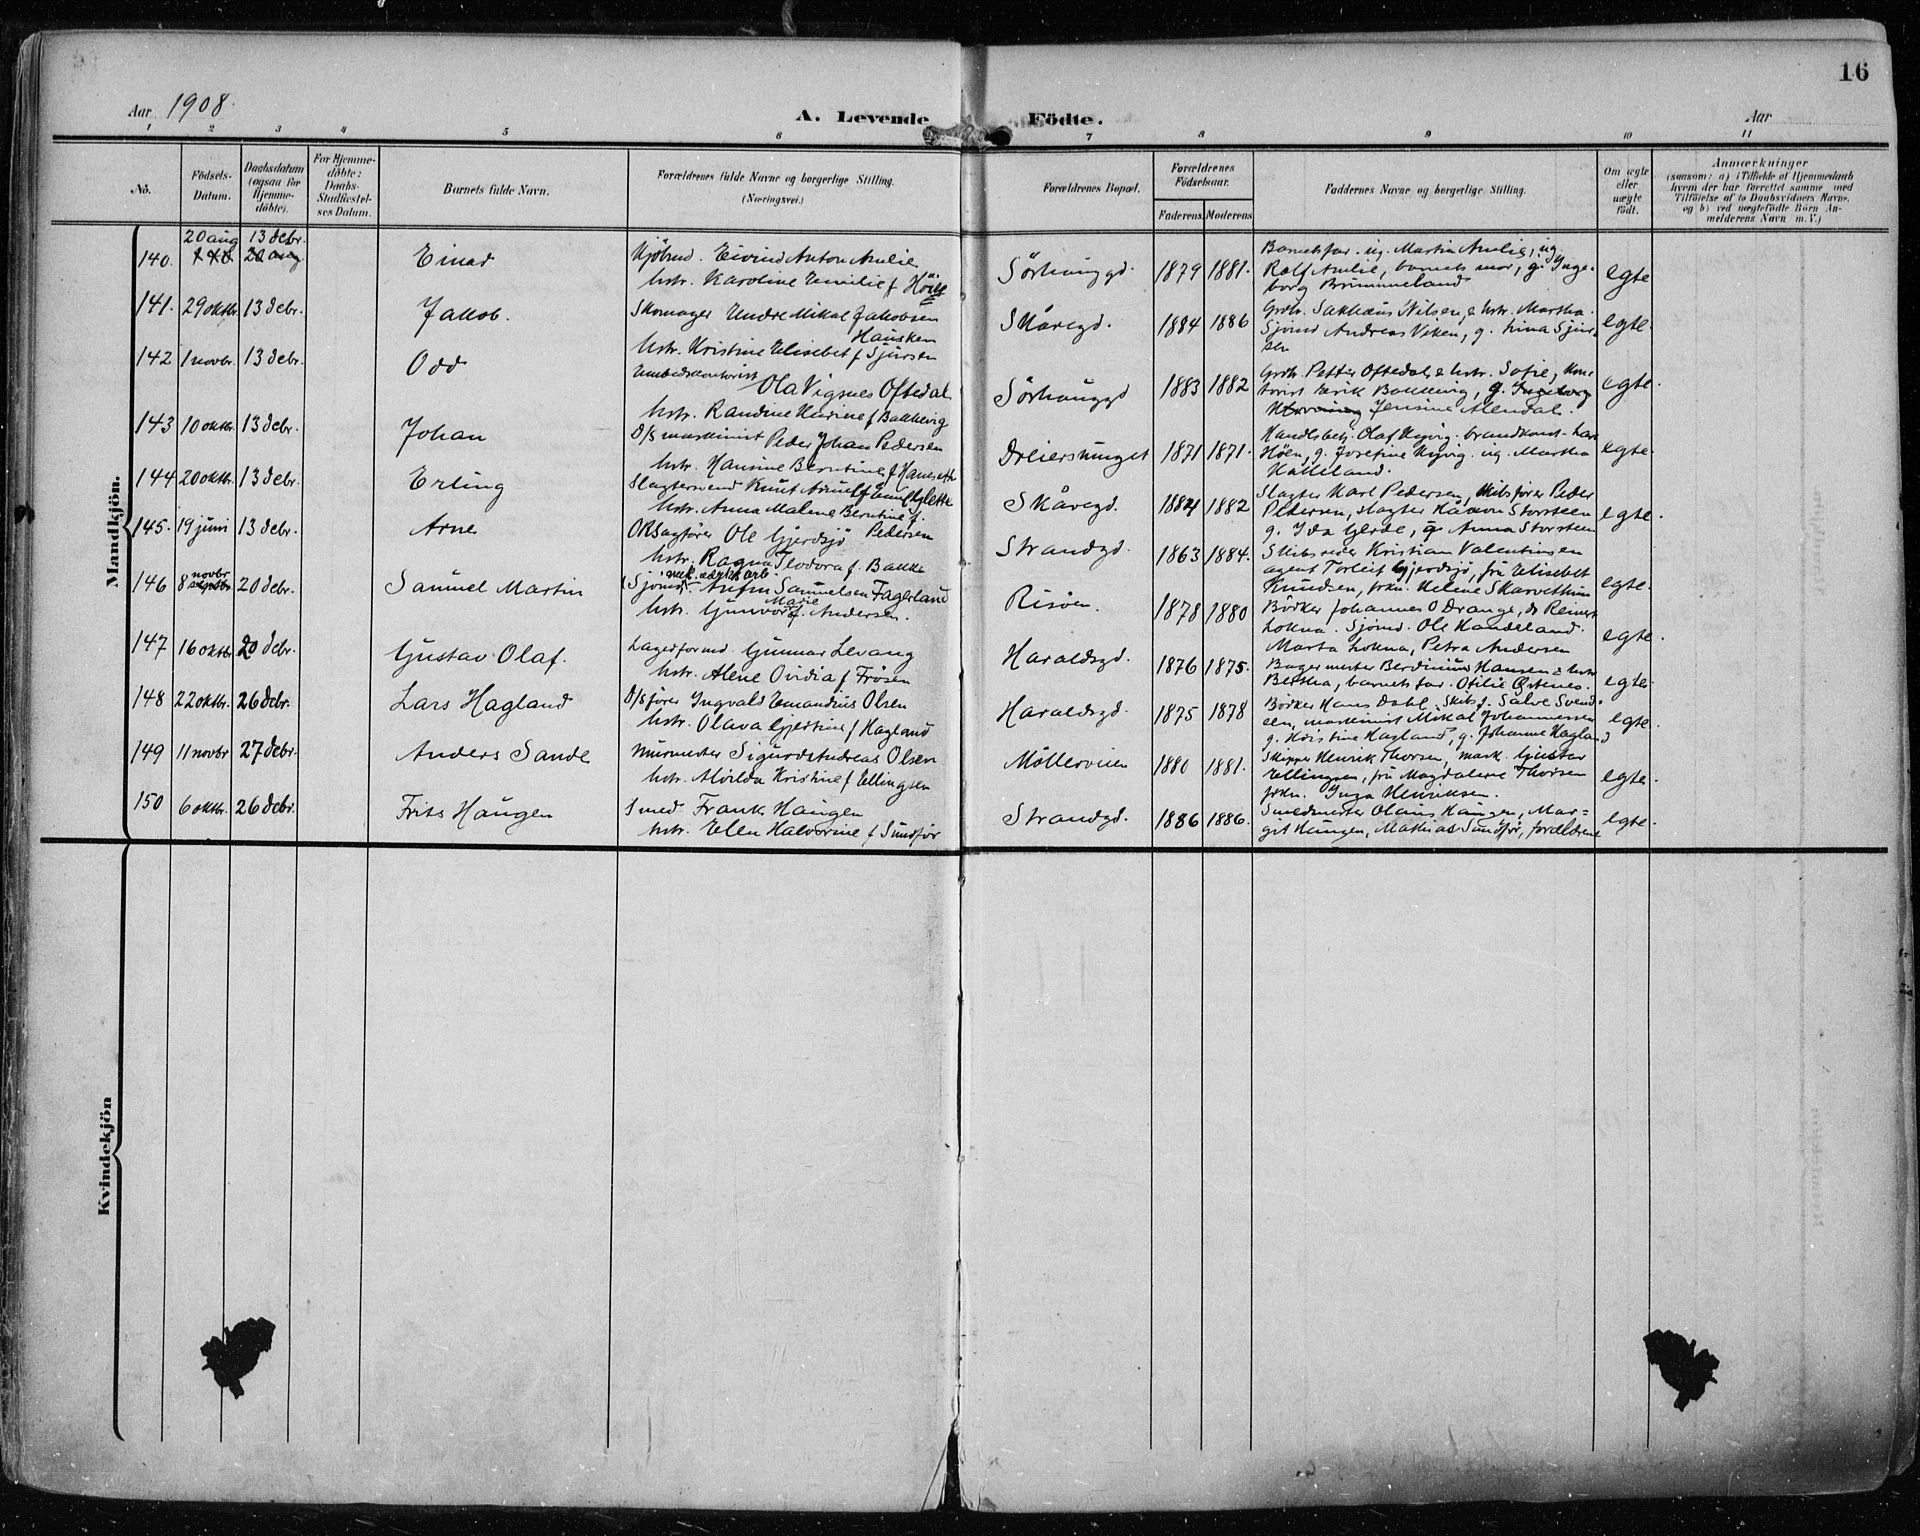 16
Aar 1908.
A. Levende Födte.
Aar
1 2 3 4 5 6 7 8 9 10 11
No.
Födsels-Datum.
Daabsdatum (ogsaa for Hjemme-döbte).
For Hjemme-döbte: Daabs-Stadfæstel-ses Datum.
Barnets fulde Navn.
Forældrenes fulde Navne og borgerlige Stilling. (Næringsvei.)
Forældrenes Bopæl.
Forældrenes Födselsaar.
Faderens. Moderens
Faddernes Navne og borgerlige Stilling.
Om ægte eller uægte födt.
Anmærkninger
(saasom: a) i Tilfælde af Hjemmedaab
hvem der har forrettet samme med
Tilföielse af to Daabsvidners Navne,
og b) ved uægtefödte Börn An-
melderens Navn m. V.)
Mandkjön.
140. 20 aug 13 debr. Einar
Kjøbmd. Eivind Anton Amlie
hstr. Karoline Emilie f
Sørhauggd. 1879 1881.
Barnets far. ug. Martin Amlie, ug.
Rolf Amlie, barnets mor, g. Inge-
borg Brummeland
egte
141. 29 oktbr. 13 debr. Jakob.
Skomager Andre Mikal Jakobsen
Hausken
hstr. Kristine Elisebet f Sjursen
Skåregd. 1884 1886
Grdbr. Nilsen, & hstr. Martha.
Sjømd Andreas Viken, g. Lina Sjur-
sen
egte.
142 1 novbr. 13 debr. Odd
Ola Vignes Oftedal
hstr. Randine f Bakkevig
Sørhauggd 1883 1882
Grdbr. Petter Oftedal & hstr. Sofie, Kon-
torist Erik Bakkevig, g. Ingeborg
Jensine Alendal.
egte.
143 10 oktbr. 13 debr. Johan
D/S maskinist Peder Johan Pedersen
hstr. Hansine Berntine f
Dreiersmuget 1871 1871.
Handlsbetj. Olaf Kyvig. brandkonst. Lars
Høen, g. Josefine Kyvig. ug. Martha
Hålleland.
egte.
144 20 oktbr. 13 debr. Erling
Slagtersvend Knut
hstr. Anna Malene Berntine f.
Pedersen
Skåregd. 1882
Slagter Karl Pedersen, skibsfører Peder
Pedersen, slagter Håkon Storsteen
g. Ida Gjerde, g. Anna Storsteen
egte.
145. 19 juni 13 debr. Arne
ORsagfører Ole Gjerdsjø
hstr. Ragna Teodora f. Bakke
Strandgd. 1863 1884.
Skibsreder Kristian Valentinsen
agent Torleif Gjerdsjø, fru Elisebet
Knudsen, frkn. Helene Skarvethun
egte.
146 8 novbr 20 debr. Samuel Martin
Sjømd. Arfin Samuelsen Fagerland
hstr. Gunvor Marie f. Andersen.
Risøen. 1878 1880
Bødker Johannes O Drange, do Reinert
Lokna. Sjømd. Ole Kandeland.
Marta Lokna, Petra Andersen
egte.
147 16 oktbr. 20 debr. Gustav Olaf.
Lagerformd. Gunnar Levang
hstr. Alene Ovidia f Frøsen
Haraldsgd. 1876 1875.
Bagermester Berdinius Hansen & hstr
Bertha, barnets far. Otilie Østenes.
egte.
148 22 oktbr. 26 debr. Lars Hagland
D/Sfører Ingvald Emandius Olsen
hstr. Olava Gjertine f Hagland
Haraldsgd. 1875 1878
Bødker Hans Dahl. Skibsf. Salve Svend-
sen, maskinist Mikal Johannessen
g. Kristine Hagland, g. Johanne Hagland
egte.
149 11 novbr 27 debr. Anders Sande
Murmester Sigurd Andreas Olsen
hstr. Alvilda Kristine f Ellingsen
Møllerveien 1880 1881.
Skipper Henrik Thorsen, mask. Gustav
Ellingsen, fru Magdalene Thorsen
frkn. Inga Henriksen.
egte.
150 6 oktbr. 26 debr. Frits Haugen
Smed Frank Haugen
hstr. Elen Halvorine f Sundfør
Strandgd. 1886 1886.
Smedmester Olaus Haugen, Mar-
git Haugen, Mathias Sundfør, forældrene
egte.
Kvindekjön